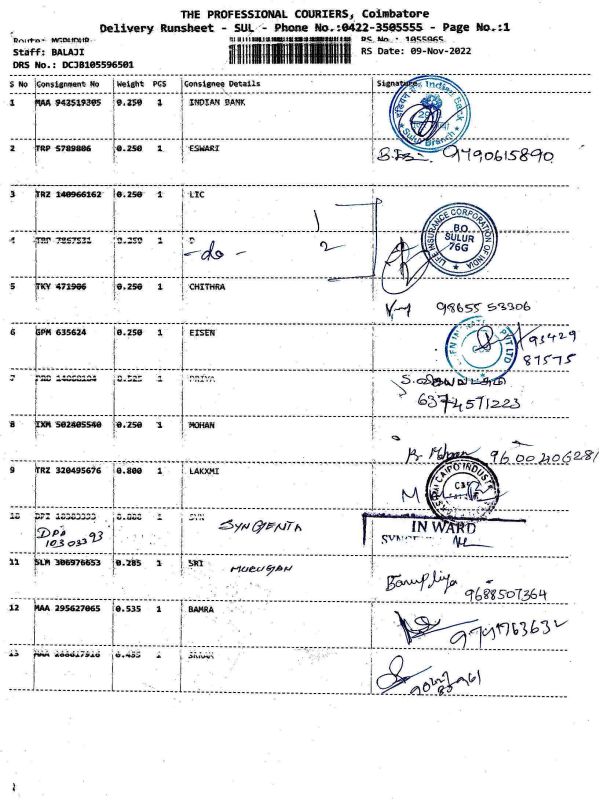 THE PROFESSIONAL COURIERS, Coimbatore
Delivery Runsheet - SUL - Phone No.:0422-3505555 - Page No.:1
RS No.: 1055965
Staff: BALAJI
RS Date: 09-Nov-2022
DRS No.: DCJ8105596501
S No Consignment No Weight PCS Consignee Details Signature
1 MAA 942519305 0.250 1 INDIAN BANK
Indian Bank
Sulur Branch
2 TRP 5789886 0.250 1 ESWARI
9790615890
3 TRZ 140966162 0.250 1 LIC
1
LIFE INSURANCE CORPORATION OF INDIA
B.O.
SULUR
76G
4 TRP 7867531 0.250 1
- do - 2
5 TKY 471906 0.250 1 CHITHRA
98655 53306
6 GPM 635624 0.250 1 EISEN
PVT LTD
93429
87575
7 1 PRIYA
6374571223
8 IXM 502405540 0.250 1 MOHAN
9600220628
9 TRZ 320495676 0.800 1 LAKXMI
10 DPI 10303393 1 SYN SYNGJENTA
DPI
10303393
IN WARD
11 SLM 306976653 0.285 1 SRI MURUGAN
9688507364
12 MAA 295627065 0.535 1 BAMRA
13 MAA 1